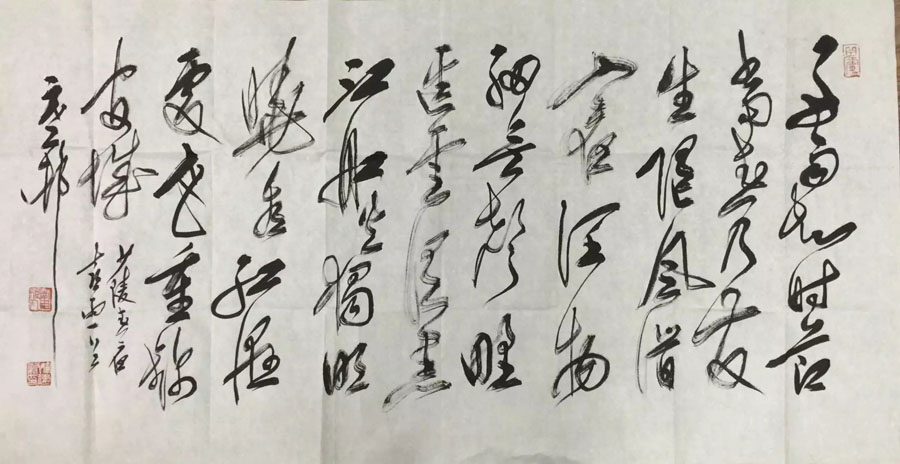 好雨知时节
当春乃发
生随风潜
入夜润物
细无声野
径云俱黑
江船火独明
晓看红湿
处花重锦
官城
少陵春夜
喜雨一首